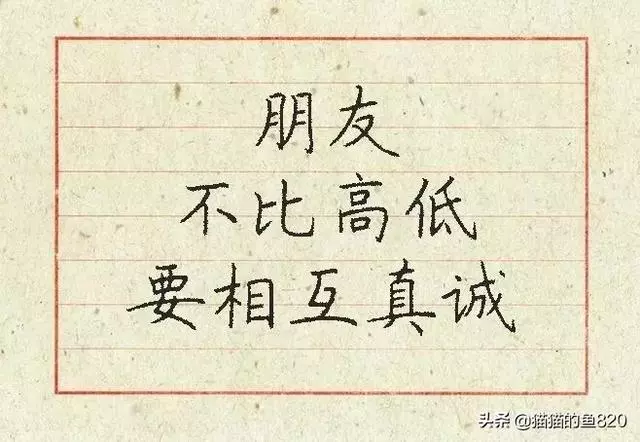 朋友
不比高低
要相互真诚
头条 @猫猫的鱼820